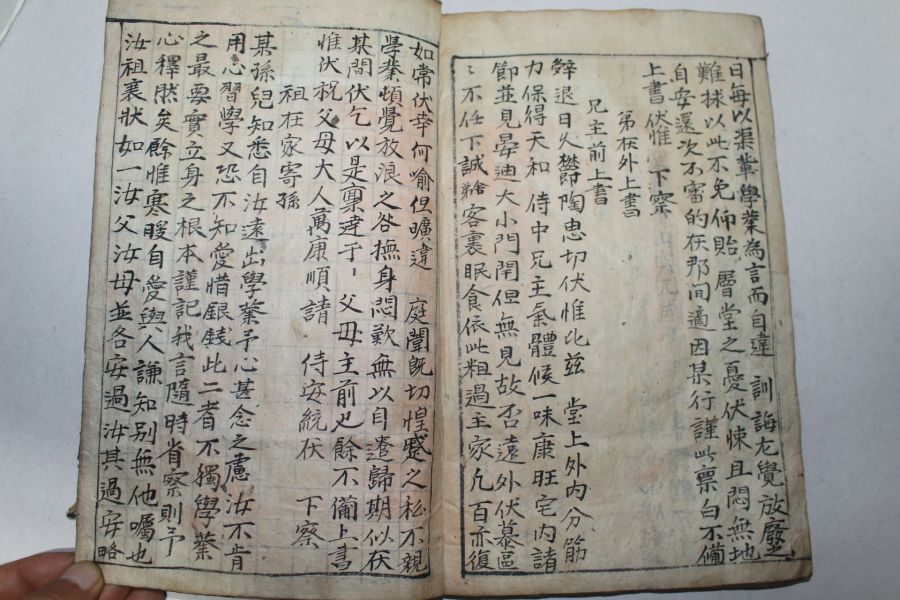 日每以渠輩學業爲言而自違　訓誨尤覺放廢
難捄以此不免仰貽　層堂之憂伏悚且悶無地
自安還次不審的在那間適因某行謹此禀白不備
上書伏惟　下察
弟在外上書
兄主前上書
辭退日久欝陶思切伏惟比玆　堂上外內分節
力保得天和　侍中兄主氣體候一味康旺宅內諸
節並見晏迪大小門閈但無見故否遠外伏慕區
〻不任下誠弟舍客裏眠食依此粗過主家凡百亦復
如常伏幸何喻但曠違　庭闈旣切惶蹙之私不親
學業頓覺放浪之咎撫身悶歎無以自遣歸期似在
某間伏乞以是禀達于　父母主前也餘不備上書
惟伏祝父母大人萬康順請　侍安統伏　下察
祖在家寄孫
某孫兒知悉自汝遠出學業予心甚念之慮汝不肯
用心習學又恐不知愛惜銀錢此二者不獨學業
之最要實立身之根本謹記我言隨時省察則予
心釋然矣餘惟寒暖自愛與人謙知別無他囑也
汝祖衰狀如一汝父汝母並各安過汝其過安略